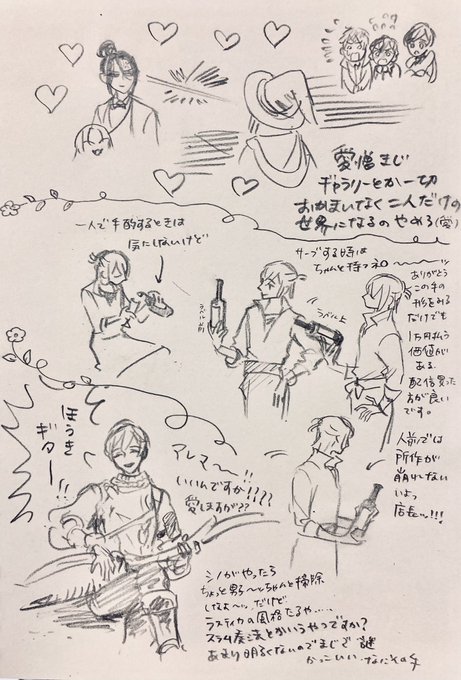 愛憎まじ
ギャラリーとか一切
おかまいなく二人だけの
世界になるのやめろ(愛)
一人で手酌するときは
気にしないけど
サーブする時は
ちゃんと持つネ〜〜ッ
ラベル前
ラベル上
ありがとう
この手の
形をみる
だけでも
1万円払う
価値が
ある。
配信買った
方が良い
です。
人前では
所作が
崩れない
いよっ
店長ッ!!!
ほうき
ギター!!
アレマ〜〜!!
いいんですか!???
愛しますが??
シノがやったら
ちょっと男子〜ッちゃんと掃除
してよ〜ッ だけど
ラスティカの風格たるや……
スラム奏法とかいうやつですか?
あまり明るくないのでまじで謎
かっこいい なにその手